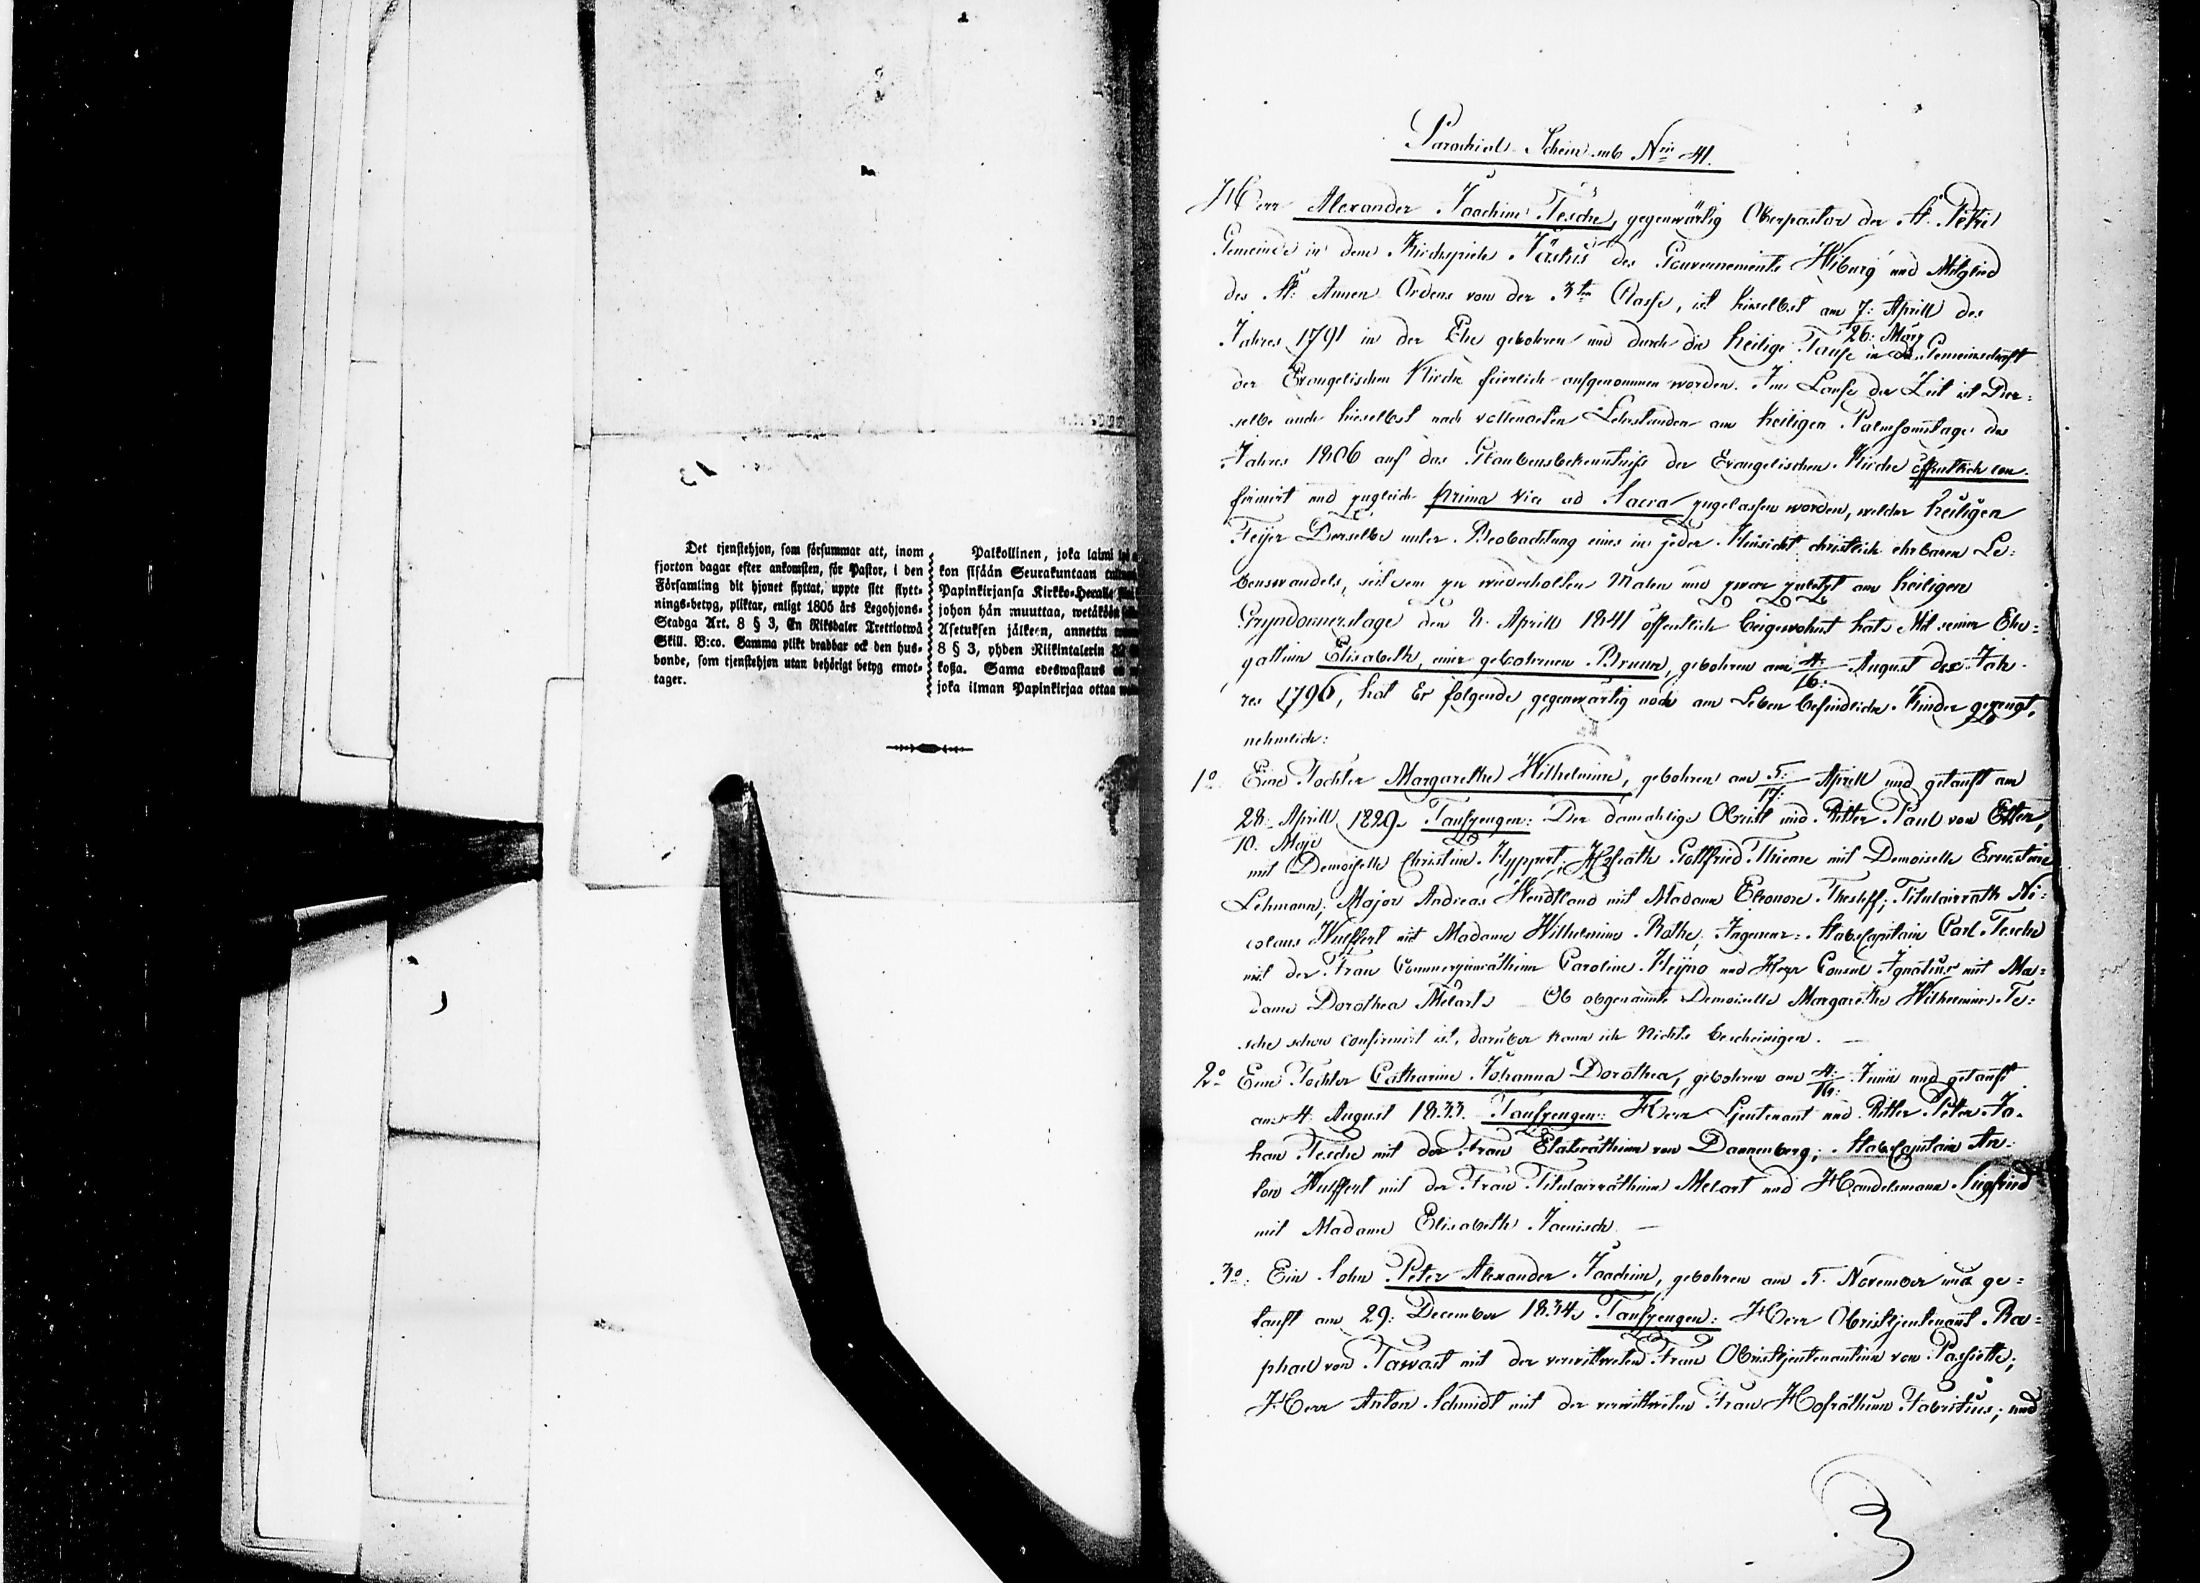 Det tjenstehjon, som försummar att, inom
fjorton dagar efter ankomsten, för Pastor, i den
Församling dit hjonet flyttat, uppte sitt flytt-
nings-betyg, pliktar, enligt 1805 års Legohjons-
Stadga Art. 8 § 3, En Riksdaler Trettiotwå
Skill. B:co. Samma plikt drabbar ock den hus-
bonde, som tjenstehjon utan behörigt betyg emot-
tager.
Palkollinen, joka laimi
kon sisään Seurakuntaan
Papinkirjansa Kirkko-Herralle
johon hän muuttaa, wetäköön
Asetuksen jälkeen, annettu
8 § 3, yhden Riikintalerin 32
koßa. Sama edeswastaus
joka ilman Papinkirjaa ottaa
Parochial-Schein sub Nro 41.
Herr Alexander Joachim Tesche, gegenwärtig Oberpastor der St. Petri
Gemeinde in dem Kirchspiele Jäskis des Gouvernements Wiburg und Mitglied
des St: Annen Ordens von der 3ten Classe, ist hieselbst am 7: Aprill des
26: März
Jahres 1791 in der Ehe gebohren und durch die heilige Taufe in die Gemeinschaft
der Evangelischen Kirche feierlich aufgenommen worden. Im Laufe der Zeit ist Der=
selbe auch hieselbst nach vollendeten Lehrstunden am heiligen Palmsonntage des
Jahres 1806 auf das Glaubensbekenntniß der Evangelischen Kirche öffentlich con-
firmirt und zugleich prima vice ad Sacra zugelassen worden, welcher heiligen
Feyer Derselbe unter Beobachtung eines in jeder Hinsicht christlich ehrbaren Le=
benswandels, seitdem zu wiederholten Malen und zwar zuletzt am heiligen
Gründonnerstage den Aprill 1841 öffentlich beigewohnt hat. Mit seiner Ehe=
gattinn Elisabeth, einer gebohrenen Bruun, gebohren am 4:/16: August des Jah-
res 1796, hat Er folgende, gegenwärtig noch am Leben befindliche Kinder gezeugt,
nehmlich:
1o Eine Tochter Margarethe Wilhelmine, gebohren am 5:/17: Aprill und getauft am
28: Aprill/10. Maji 1829. Taufzeugen: Der damahlige Obrist und Ritter Paul von Etter,
mit Demoiselle Christine Hyppert; Hofrath Gottfried Thieme mit Demoiselle Ernestine
Lehmann; Major Andreas Wendtland mit Madame Eleonore Thesleff; Titulairrath Ni=
colaus Wulffert mit Madame Wilhelmine Rothe; Ingenieur-StabsCapitain Carl Tesche
mit der Frau Commerzienräthinn Caroline Heyno und Herr Consul Ignatius mit Ma=
dame Dorothea Melart. Ob obgenannte Demoiselle Margarethe Wilhelmine Te=
sche schon confirmirt ist, darüber kann ich Nichts bescheinigen. —
2o Eine Tochter Catharine Johanna Dorothea, gebohren am 4:/16: Junii und getauft
am 4. August 1833. Taufzeugen: Herr Lieutenant und Ritter Peter Jo-
han Tesche mit der Frau Etatsräthinn von Dannenberg; StabsCapitain An=
ton Wulffert mit der Frau Titulairräthinn Melart und Handelsmann Siegfried
mit Madame Elisabeth Jaenisch. —
3o: Ein Sohn Peter Alexander Joachim, gebohren am 5. November und ge=
tauft am 29: December 1834. Taufzeugen: Herr Obristlieutenant Ra=
phael von Tawast mit der verwittweten Frau Obristlieutenantinn von Passiette;
Herr Anton Schmidt mit der verwittweten Frau Hofräthinn Fabritius; und